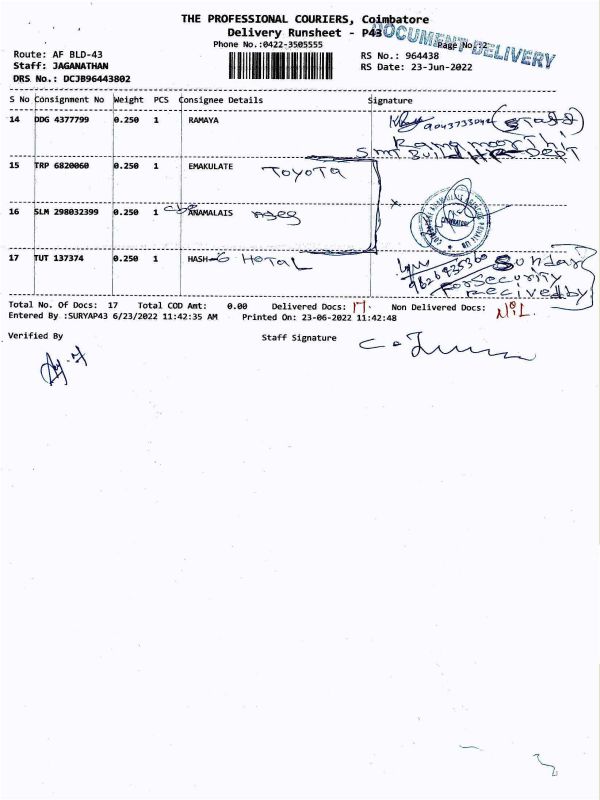 THE PROFESSIONAL COURIERS, Coimbatore
Delivery Runsheet - P43
DOCUMENT DELIVERY
Phone No.:0422-3505555 Page No.:2
Route: AF BLD-43 RS No.: 964438
Staff: JAGANATHAN RS Date: 23-Jun-2022
DRS No.: DCJB96443802
S No Consignment No Weight PCS Consignee Details Signature
14 DDG 4377799 0.250 1 RAMAYA 9043733042 (Staff)
15 TRP 6820060 0.250 1 EMAKULATE TOYOTA
16 SLM 298032399 0.250 1 cbe ANAMALAIS
17 TUT 137374 0.250 1 HASH-6 HOTAL Sundar
9626935360 For Security
Recived by
Total No. Of Docs: 17 Total COD Amt: 0.00 Delivered Docs: 17. Non Delivered Docs: NiL.
Entered By :SURYAP43 6/23/2022 11:42:35 AM Printed On: 23-06-2022 11:42:48
Verified By Staff Signature